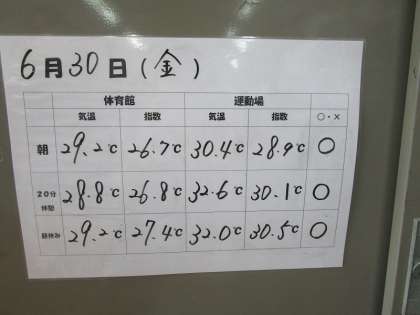 6月30日(金)
体育館 運動場
気温 指数 気温 指数 ○・×
朝 29.2℃ 26.7℃ 30.4℃ 28.9℃ ○
20分休憩 28.8℃ 26.8℃ 32.6℃ 30.1℃ ○
昼休み 29.2℃ 27.4℃ 32.0℃ 30.5℃ ○